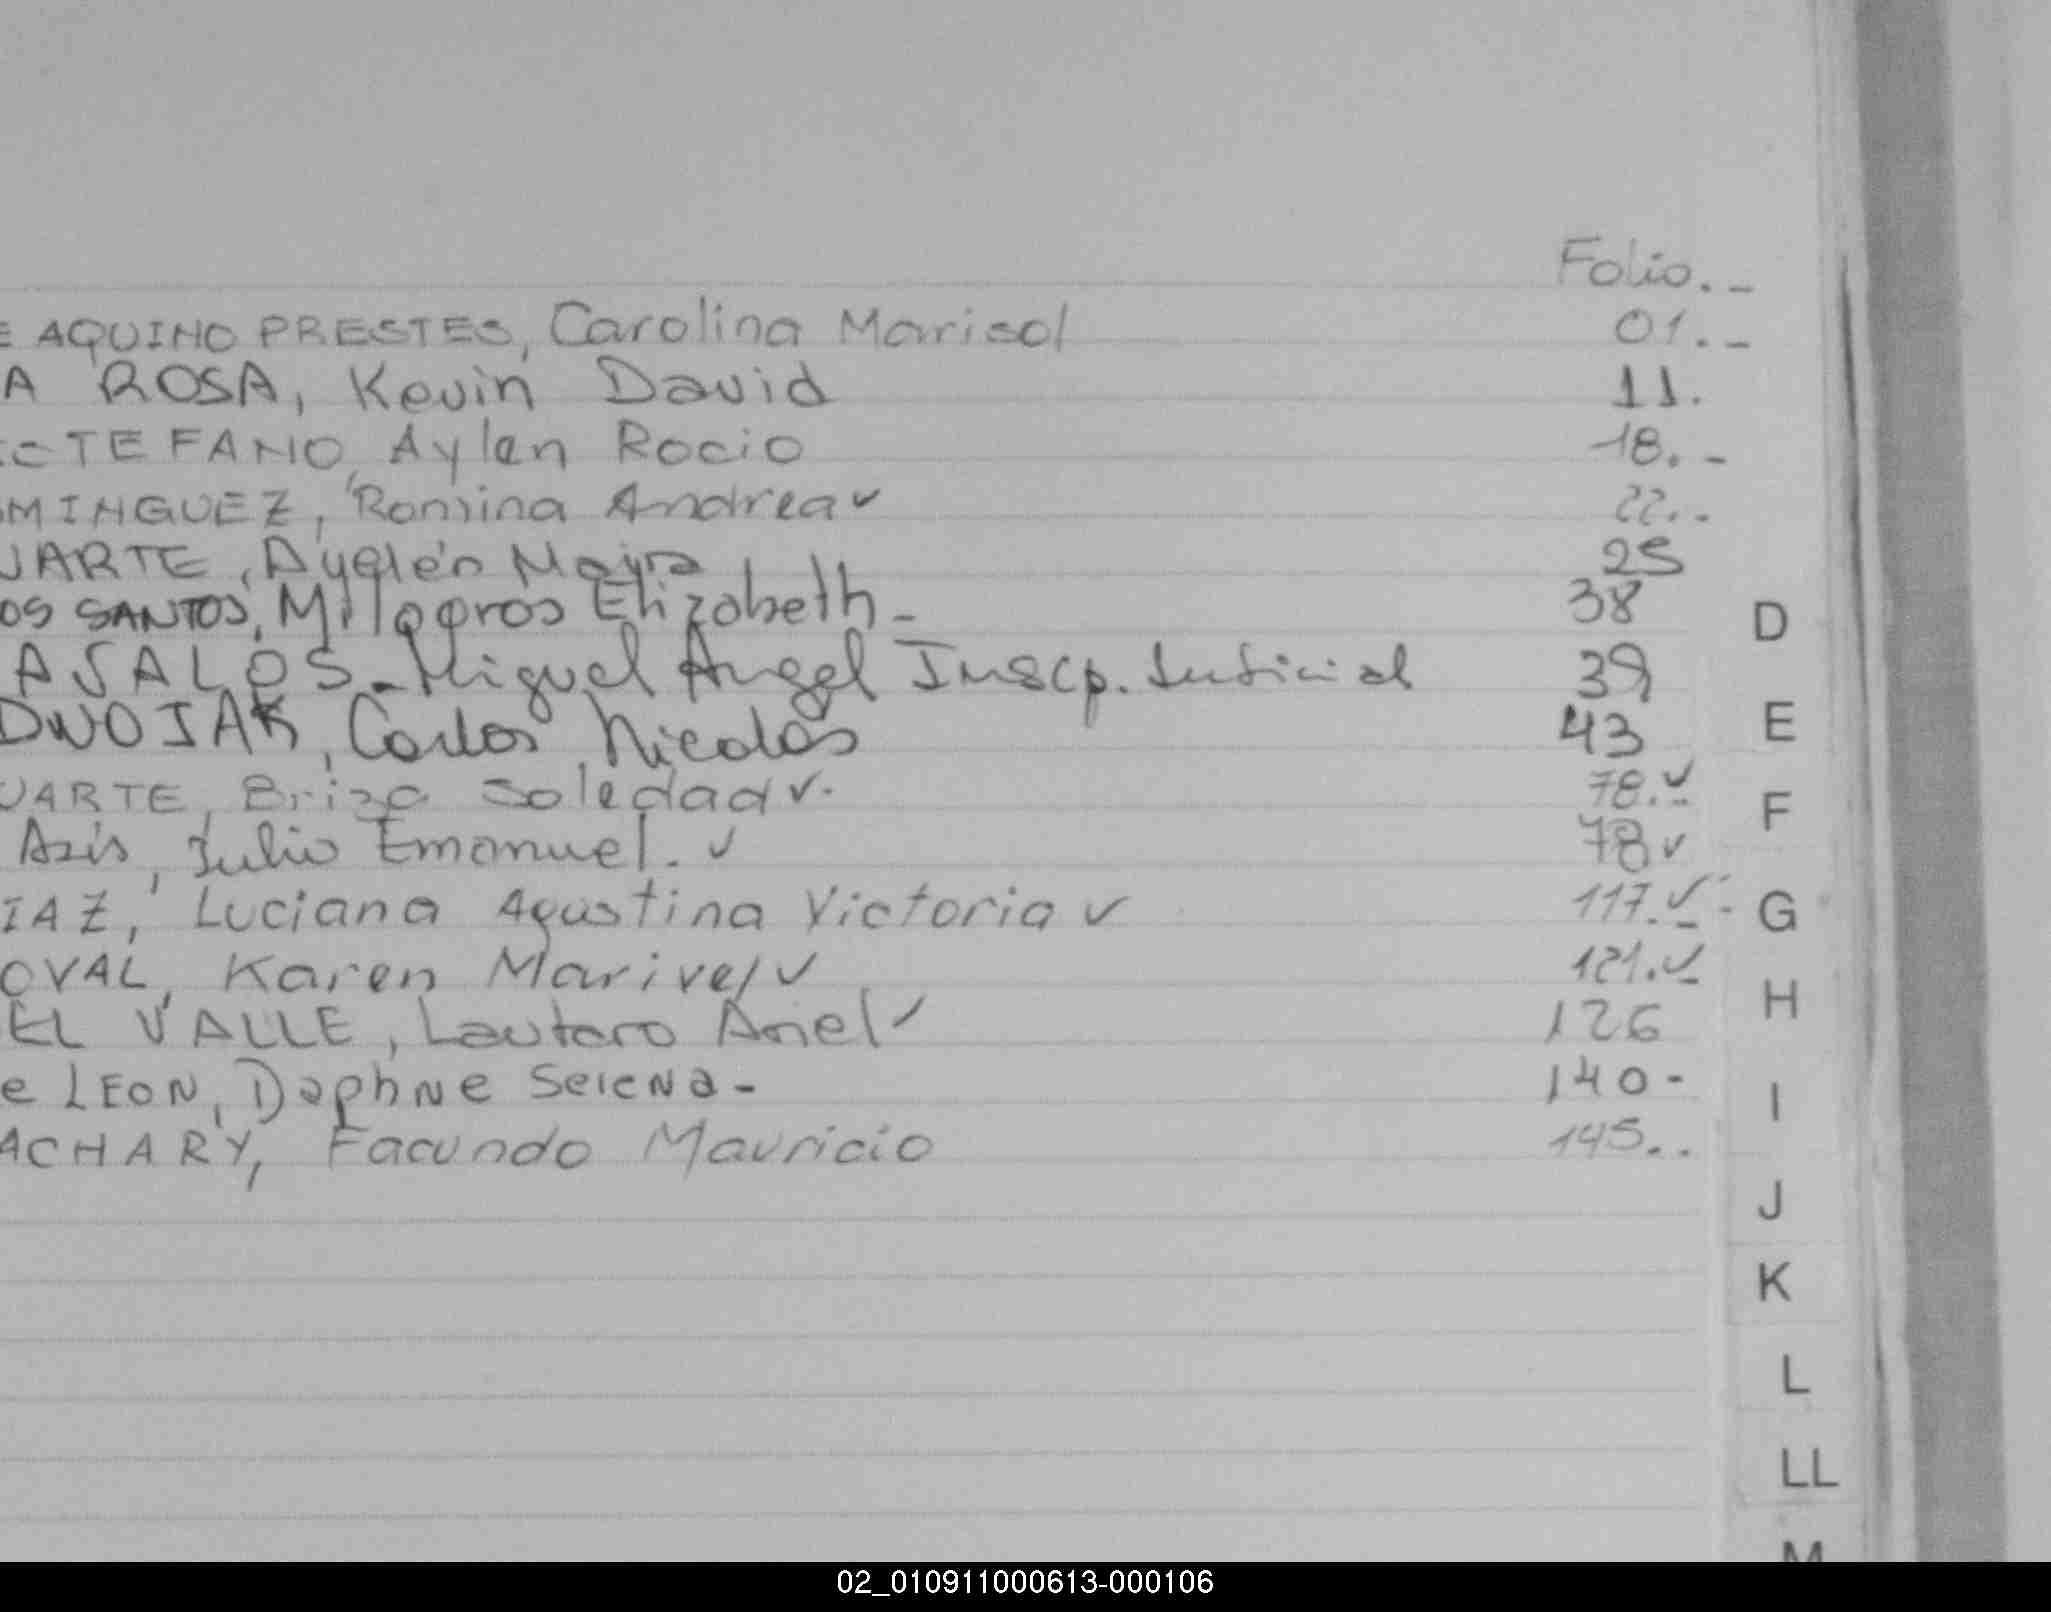 Folio._
E AQUINO PRESTES, Carolina Marisol 01._
A ROSA, Kevin David 11.
TEFANO, Aylen Rocio 18._
MINGUEZ, Romina Andrea ✓ 22..
UARTE, Ayelén Mayra 25
OS SANTOS, Milagros Elizabeth_ 38
ASALOS_Miguel Angel Inscp. Judicial 39
DWOJAK, Carlos Nicolás 43
UARTE, Briza Soledad ✓. 78.✓
Azis, Julio Emanuel. ✓ 78 ✓
IAZ, Luciana Agustina Victoria ✓ 117.✓
OVAL, Karen Marivel ✓ 121.✓
EL VALLE, Lautaro Ariel ✓ 126
e LEON, Daphne Selena- 140-
ACHARY, Facundo Mauricio 145..
D
E
F
G
H
I
J
K
L
LL
M
02_010911000613-000106